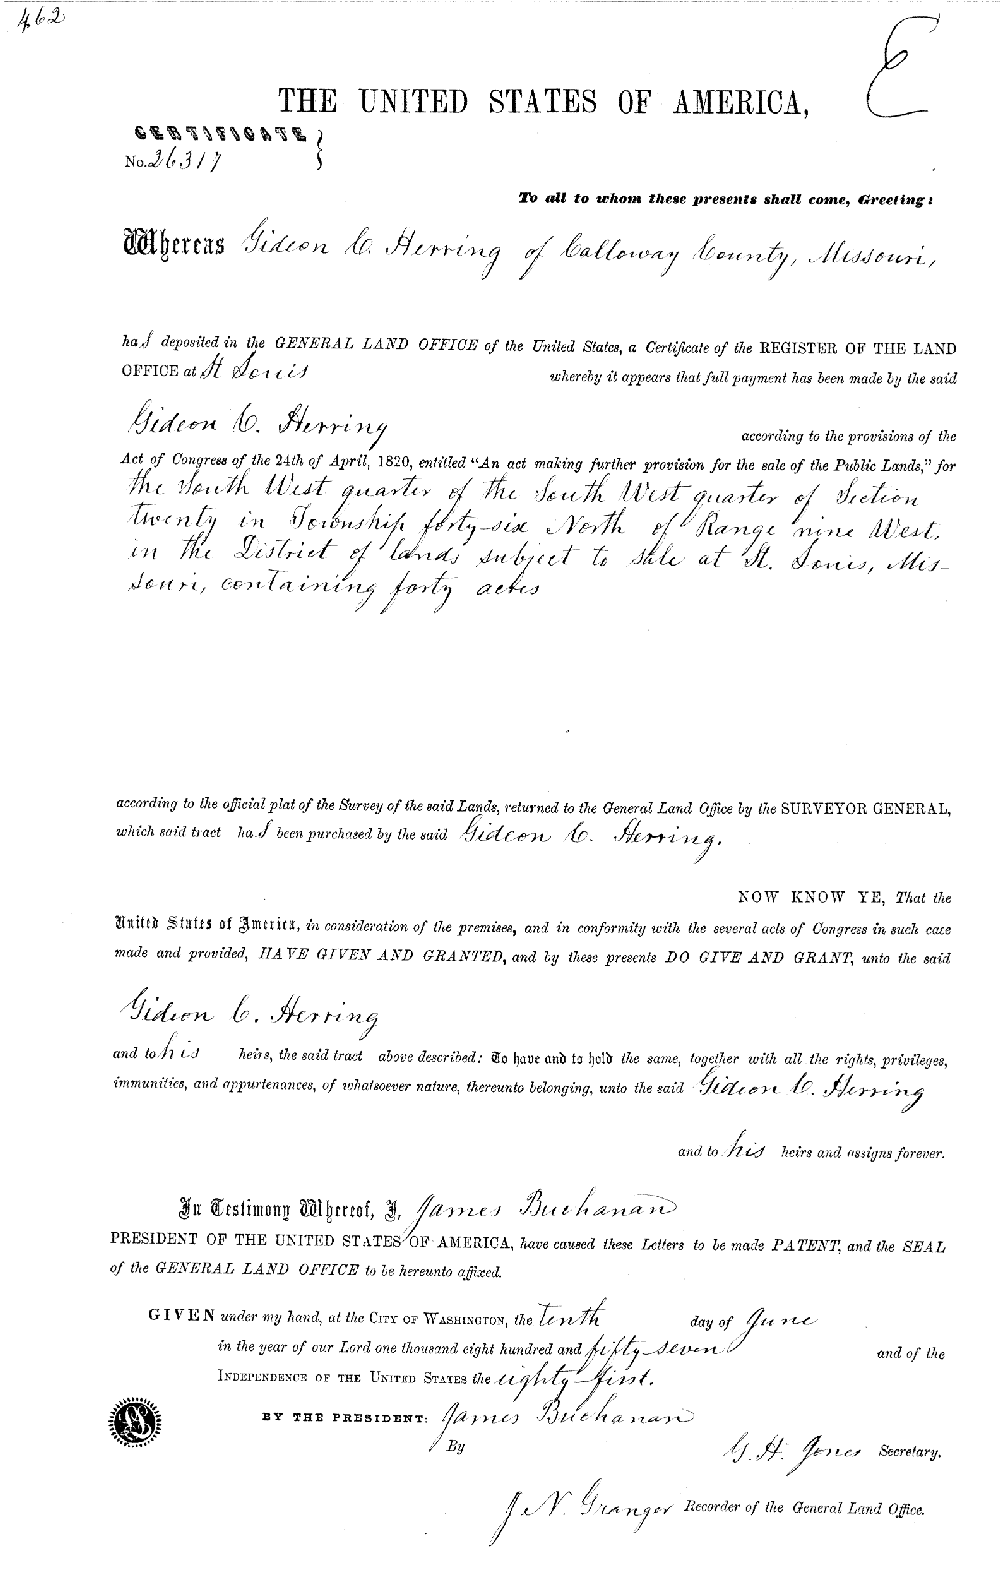 462
E
THE UNITED STATES OF AMERICA,
CERTIFICATE
No. 26317
To all to whom these presents shall come, Greeting:
Whereas Gideon C. Herring of Calloway County, Missouri,
ha s deposited in the GENERAL LAND OFFICE of the United States, a Certificate of the REGISTER OF THE LAND
OFFICE at St Louis whereby it appears that full payment has been made by the said
Gideon C. Herring according to the provisions of the
Act of Congress of the 24th of April, 1820, entitled "An act making further provision for the sale of the Public Lands," for
the South West quarter of the South West quarter of Section
twenty in Township forty-six North of Range nine West,
in the District of lands subject to sale at St. Louis, Mis-
souri, containing forty acres
according to the official plat of the Survey of the said Lands, returned to the General Land Office by the SURVEYOR GENERAL,
which said tract ha s been purchased by the said Gideon C. Herring.
NOW KNOW YE, That the
United States of America, in consideration of the premises, and in conformity with the several acts of Congress in such case
made and provided, HAVE GIVEN AND GRANTED, and by these presents DO GIVE AND GRANT, unto the said
Gideon C. Herring
and to his heirs, the said tract above described: To have and to hold the same, together with all the rights, privileges,
immunities, and appurtenances, of whatsoever nature, thereunto belonging, unto the said Gideon C. Herring
and to his heirs and assigns forever.
In Testimony Whereof, I, James Buchanan
PRESIDENT OF THE UNITED STATES OF AMERICA, have caused these Letters to be made PATENT, and the SEAL
of the GENERAL LAND OFFICE to be hereunto affixed.
GIVEN under my hand, at the CITY OF WASHINGTON, the tenth day of June
in the year of our Lord one thousand eight hundred and fifty-seven and of the
INDEPENDENCE OF THE UNITED STATES the eighty-first.
BY THE PRESIDENT: James Buchanan
By G. H. Jones Secretary.
J. N. Granger Recorder of the General Land Office.